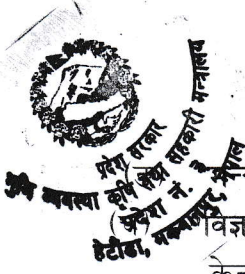 प्रदेश सरकार
भूमि व्यवस्था कृषि तथा सहकारी मन्त्रालय
प्रदेश नं.
हेटौंडा, मकवानपुर, नेपाल